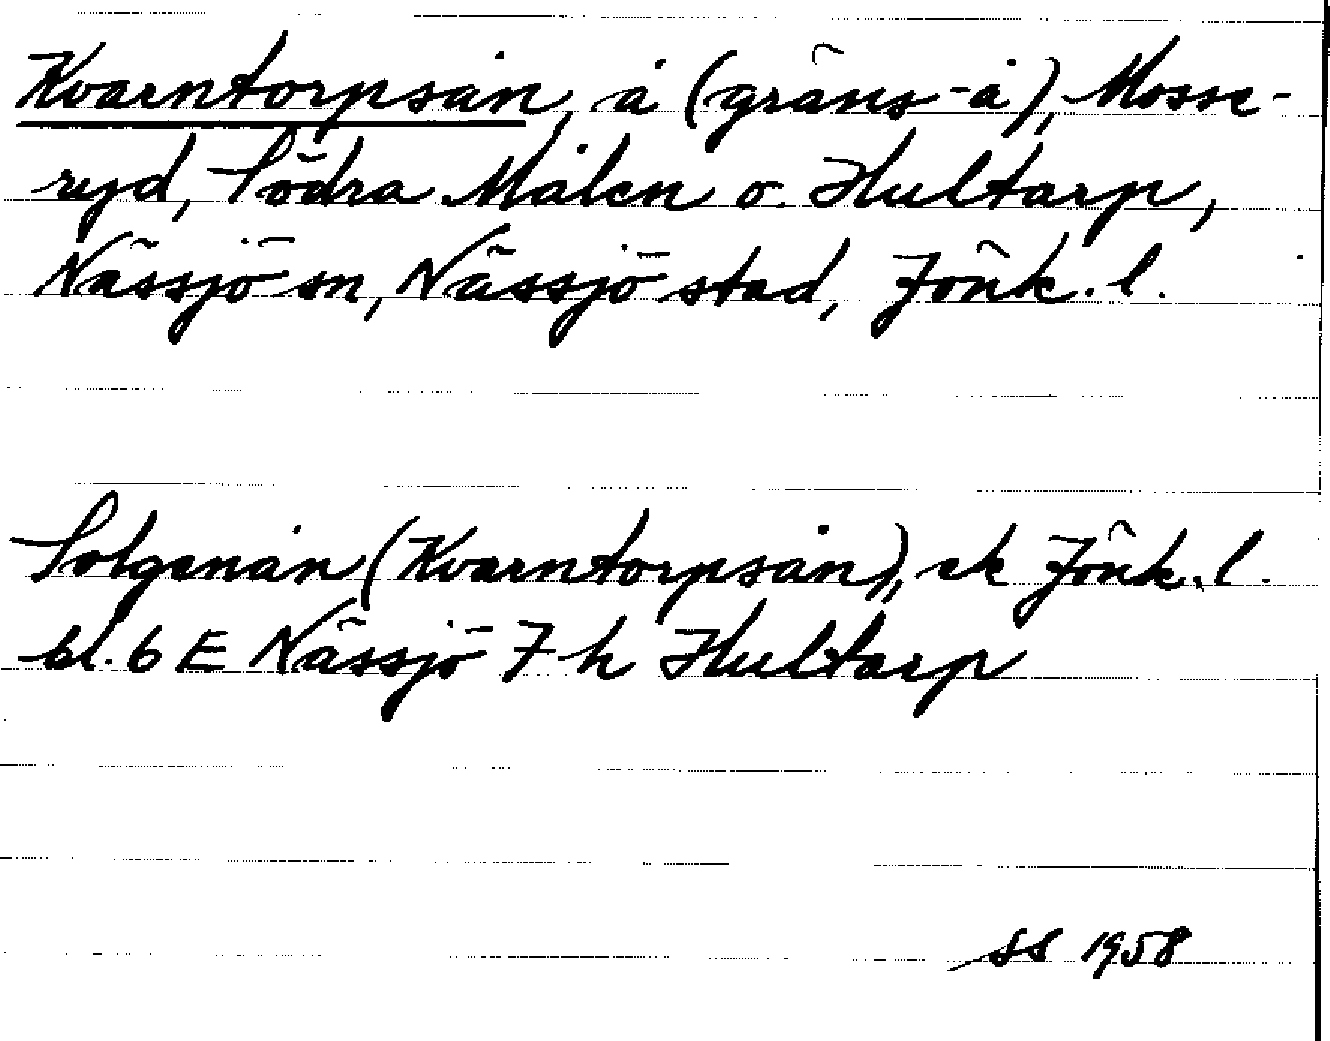 Kvarntorpsån, å (gräns-å), Mosse-
ryd, Södra Målen o. Hultarp,
Nässjö sn, Nässjö stad, Jönk. l.
Solgenån (Kvarntorpsån), ek Jönk. l.
bl. 6 E Nässjö 7 h Hultarp
SS 1958